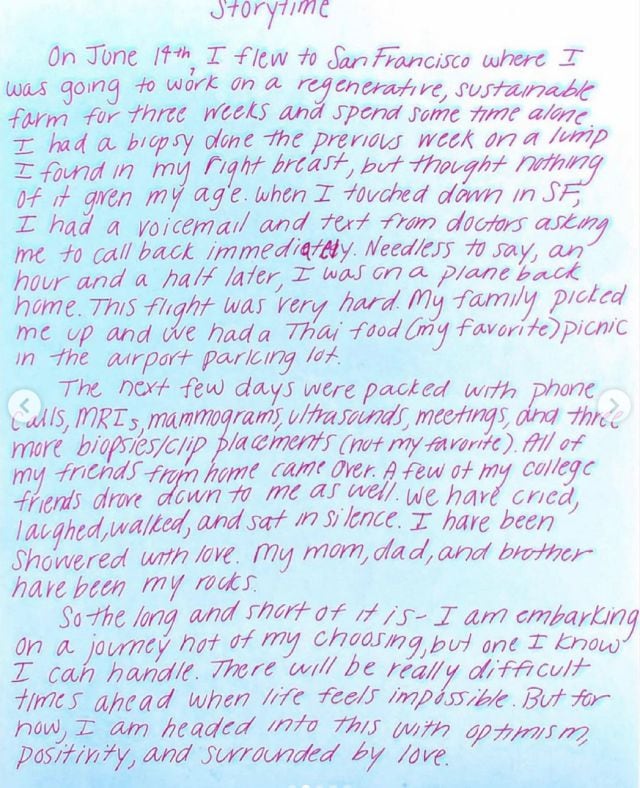 Storytime
On June 14th, I flew to San Francisco where I
was going to work on a regenerative, sustainable
farm for three weeks and spend some time alone.
I had a biopsy done the previous week on a lump
I found in my right breast, but thought nothing
of it given my age. When I touched down in SF,
I had a voicemail and text from doctors asking
me to call back immediately. Needless to say, an
hour and a half later, I was on a plane back
home. This flight was very hard. My family picked
me up and we had a Thai food (my favorite) picnic
in the airport parking lot.
The next few days were packed with phone
calls, MRIs, mammograms, ultrasounds, meetings, and three
more biopsies/clip placements (not my favorite). All of
my friends from home came over. A few of my college
friends drove down to me as well. We have cried,
laughed, walked, and sat in silence. I have been
showered with love. My mom, dad, and brother
have been my rocks.
So the long and short of it is - I am embarking
on a journey not of my choosing, but one I know
I can handle. There will be really difficult
times ahead when life feels impossible. But for
now, I am headed into this with optimism,
positivity, and surrounded by love.